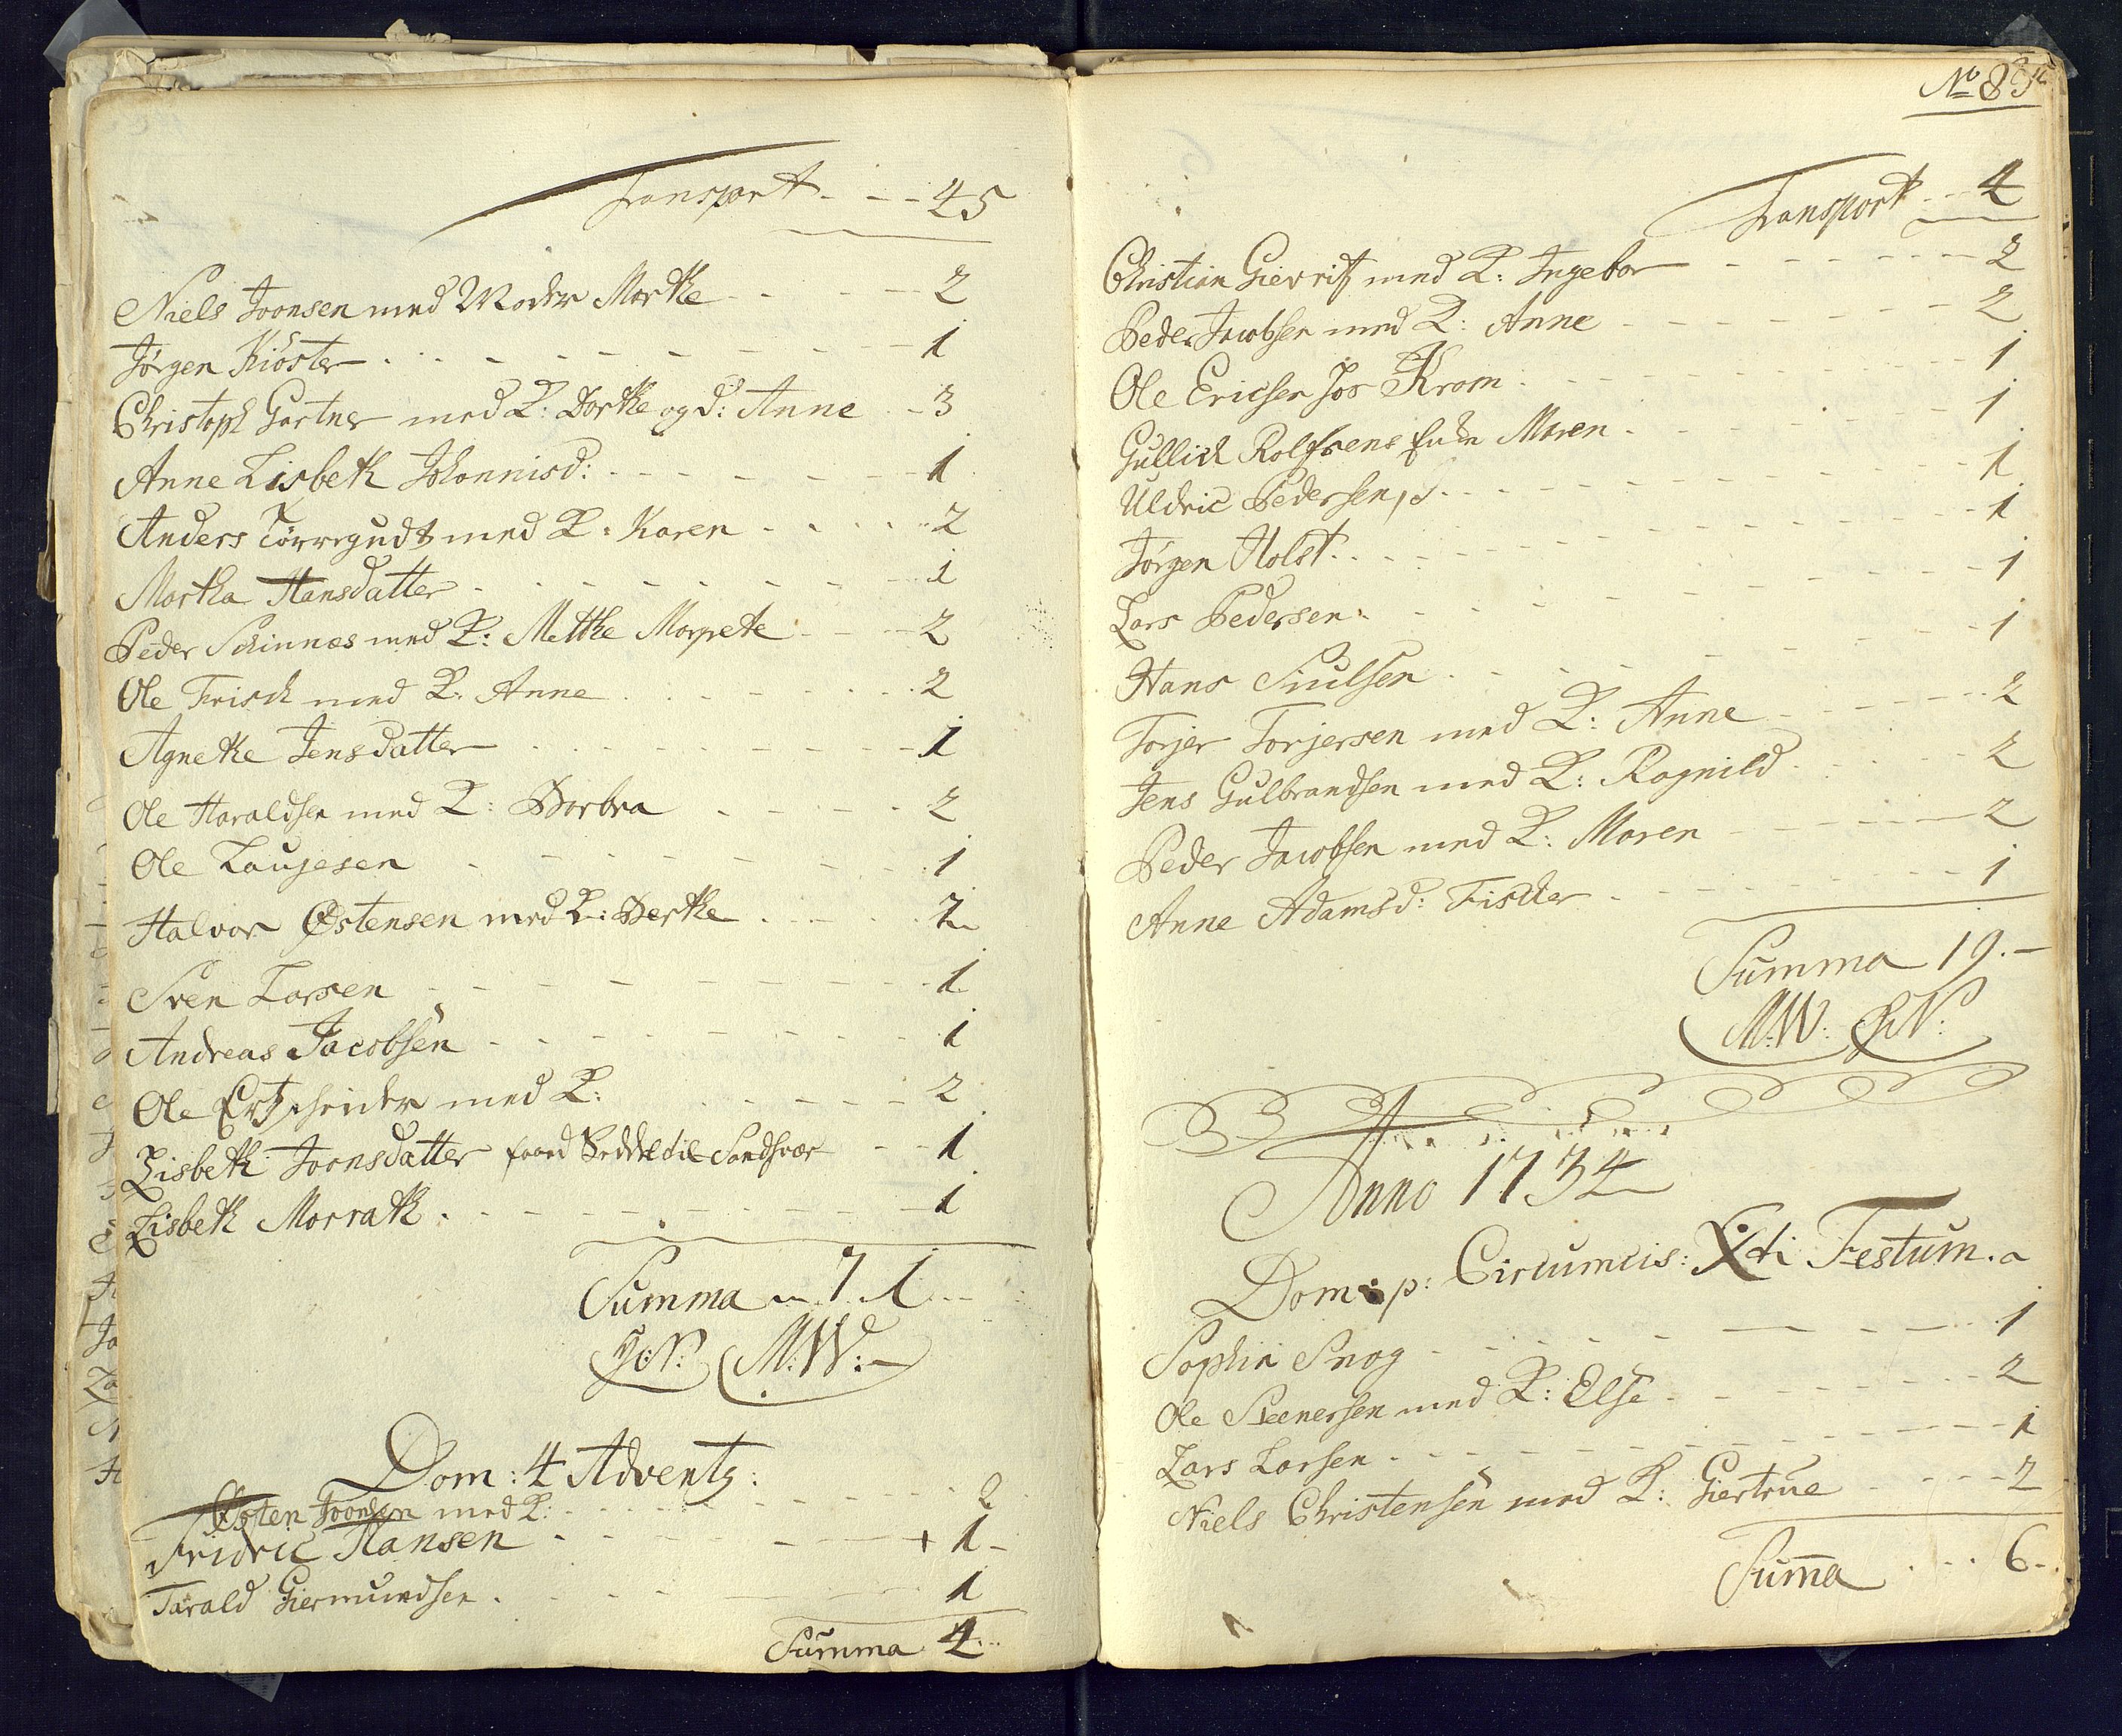 Transport - - - 45
Niels Joonsen med Moder Marthe - - - 2
Jørgen Kiøster - - - 1
Christoph Gartner med K: Dorthe og d: Anne - 3
Anne Lisbeth Johannisd: - - - 1
Anders Törrgudt med K: Karen - - - 2
Martha Hansdatter - - - 1
Peder Schinnes med K: Mette Margrete - - - 2
Ole Frisch med K: Anne - - - 2
Agnethe Jensdatter - - - 1
Ole Haraldsen med K: Barbra - - - 2
Ole Laugesen - - - 1
Halvor Østensen med K: Berthe - - - 2
Sven Larsen - - - 1
Andreas Jacobsen - - - 1
Ole Ertzscheider med K: - - - 2
Lisbeth Joonsdatter faaed Seddel til Sandsvær - - 1
Lisbeth Morrath - - - 1
Summa - 71
M:W:
Dom: 4 Advents:
Østen Joonsen med K: - - - 2
Fridric Hansen - - - + 1
Tarald Giermundsen - - - 1
Summa 4
No 85
Transport - - 4
Christian Gierritz med K: Ingebor - - - 2
Peder Jacobsen med K: Anne - - - 2
Ole Ericsen hos Krom - - - 1
Gullich Rolfsens Enke Maren - - - 1
Uldric Pedersen - - - 1
Jørgen Holst - - - 1
Lars Pedersen - - - 1
Hans Siulsen - - - 1
Torjer Torjersen med K: Anne - - - 2
Jens Gulbrandsen med K: Ragnild - - - 2
Peder Jacobsen med K: Maren - - - 2
Anne Adamsd: Fischer - - - 1
Summa 19.-
M:W:
Anno 1734
Dom: p: Circumcis: Xti Festum.
Sophia Snog - - - 1
Ole Steenersen med K: Else - - - 2
Lars Larsen - - - 1
Niels Christensen med K: Giertrue - - - 2
Suma - - - 6-